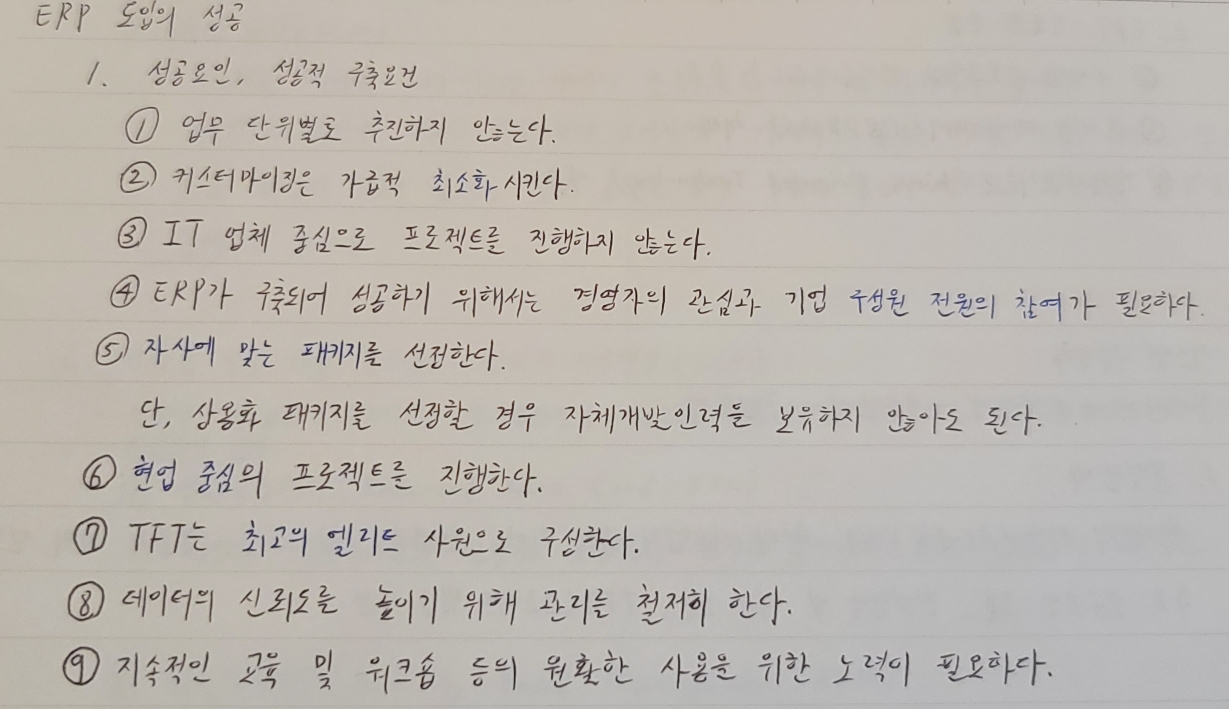 ERP 도입의 성공
1. 성공요인, 성공적 구축요건
① 업무 단위별로 추진하지 않는다.
② 커스터마이징은 가급적 최소화 시킨다.
③ IT 업체 중심으로 프로젝트를 진행하지 않는다.
④ ERP가 구축되어 성공하기 위해서는 경영자의 관심과 기업 구성원 전원의 참여가 필요하다.
⑤ 자사에 맞는 패키지를 선정한다.
단, 상용화 패키지를 선정할 경우 자체개발인력을 보유하지 않아도 된다.
⑥ 현업 중심의 프로젝트를 진행한다.
⑦ TFT는 최고의 엘리트 사원으로 구성한다.
⑧ 데이터의 신뢰도를 높이기 위해 관리를 철저히 한다.
⑨ 지속적인 교육 및 워크숍 등의 원활한 사용을 위한 노력이 필요하다.